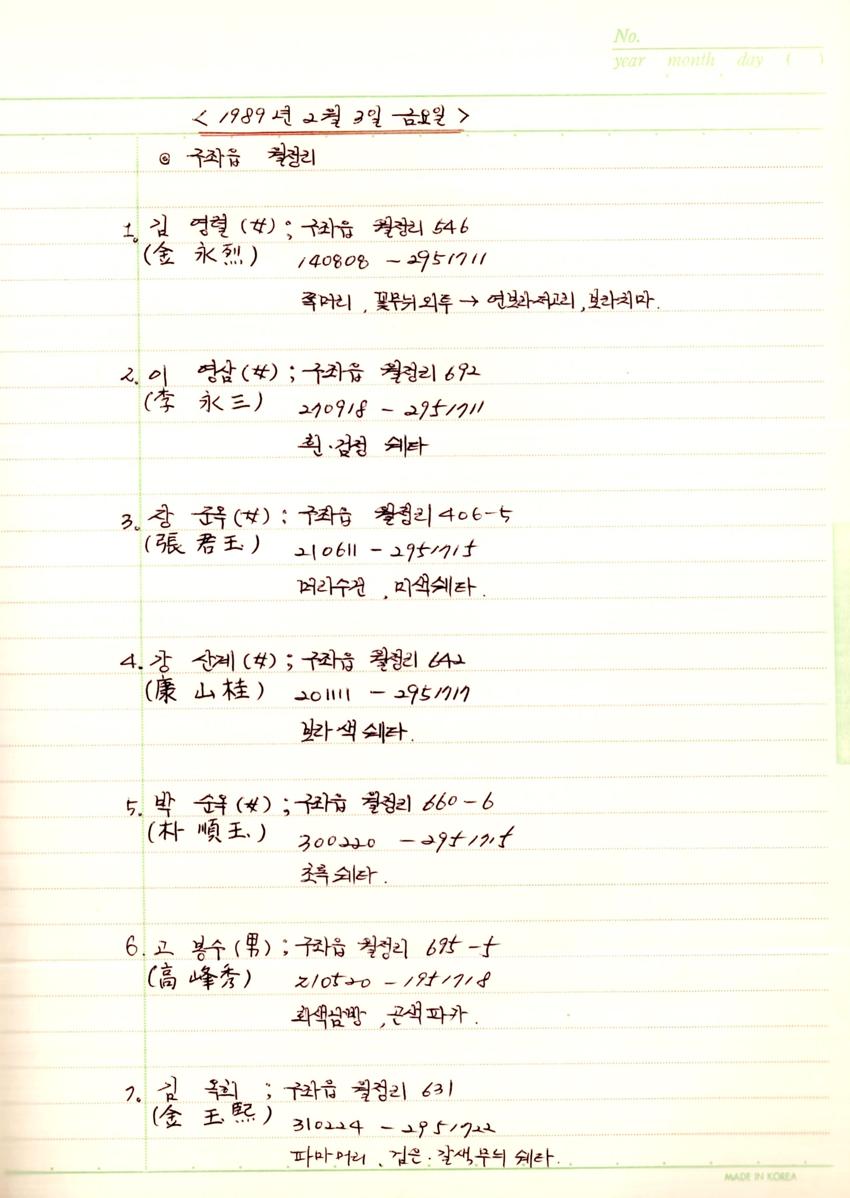 No.
year month day ( )
< 1989년 2월 3일 금요일 >
◎ 구좌읍 월정리
1. 김 영렬 (女) ; 구좌읍 월정리 546
(金 永烈) 140808 - 2951711
쪽머리, 꽃무늬외투 → 연보라저고리, 보라치마.
2. 이 영삼 (女) ; 구좌읍 월정리 692
(李 永三) 270918 - 2951711
흰·검정 쉐타
3. 장 군옥 (女) : 구좌읍 월정리 406-5
(張 君玉) 210611 - 2951715
머리수건, 미색쉐타.
4. 강 산계 (女) ; 구좌읍 월정리 642
(康 山桂) 201111 - 2951717
보라색 쉐타.
5. 박 순옥 (女) ; 구좌읍 월정리 660-6
(朴 順玉) 300220 - 2951715
초록쉐타.
6. 고 봉수 (男) ; 구좌읍 월정리 695-5
(高 峰秀) 210520 - 1951718
회색남방, 곤색파카.
7. 김 옥희 ; 구좌읍 월정리 631
(金 玉熙) 310224 - 2951722
파마머리, 검은·갈색무늬 쉐타.
MADE IN KOREA